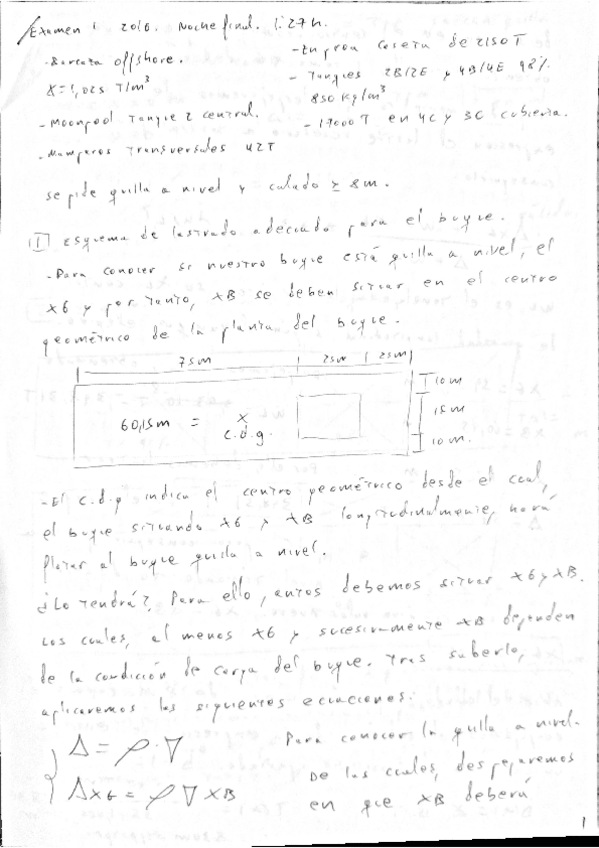 Examen 1 2016. Noche final. 1:27h.
- Barcaza offshore.
γ=1,025 T/m³
- Moonpool Tanque 2 central.
- Mamparos transversales 42T
- En proa caseta de 2150T
- Tanques 2B/2E y 4B/4E 98%
850 kg/m³
- 17000T en 4C y 3C cubierta.
se pide quilla a nivel y calado ≥ 8m.
1 Esquema de lastrado adecuado para el buque.
- Para conocer si nuestro buque está quilla a nivel, el
XG y por tanto, XB se deben situar en el centro
geométrico de la planta del buque.
75m 25m 25m
10m
15m
10m.
60,15m = X
c.d.g.
- El c.d.g indica el centro geométrico desde el cual,
el buque situando XG y XB longitudinalmente, hará
flotar al buque quilla a nivel.
¿Lo tendrá? Para ello, antes debemos situar XG y XB.
Los cuales, al menos XG y sucesivamente XB dependen
de la condición de carga del buque. Tras saberlo,
aplicaremos las siguientes ecuaciones:
Δ = ρ · ∇
ΔXG = ρ ∇ XB
Para conocer la quilla a nivel.
De las cuales, despejaremos
en que XB deberá
1